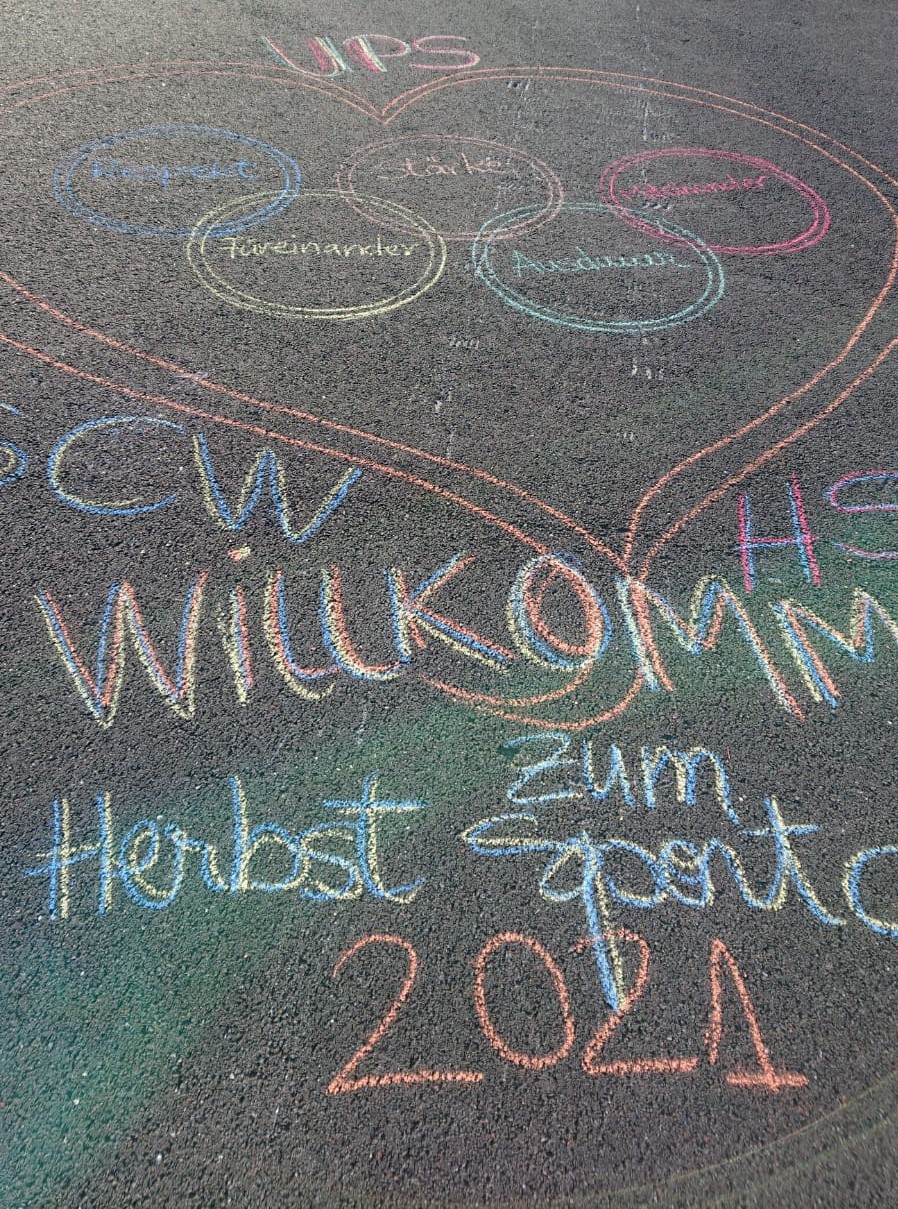 UPS
Respekt Stärke Miteinander
Füreinander Ausdauer
CW HS
WillKOMM
zum
Herbst Sportc
2021